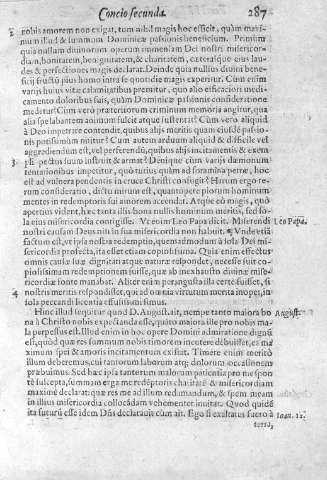 Concio secunda. 287
2 nobis amorem non exigat, tum nihil magis hoc efficit, quàm maxi-
mum illud & summum Dominicæ passionis beneficium. Primùm
quia nullum divinorum operum immensam Dei nostri misericor-
diam, bonitatem, benignitatem, & charitatem, cæterasque eius lau-
des & perfectiones magis declarat. Deinde quia nullius divini bene-
ficij fructũ pius homo intra se quotidie magis experitur. Cùm enim
varijs huius vitæ calamitatibus premitur, quo alio efficaciori medi-
camento doloribus suis, quàm Dominicæ passionis consideratione
medetur? Cùm verò præteritorum criminum memoria angitur, qua
alia spe labantem animum fulcit atque sustentat? Cùm verò aliquid
à Deo impetrare contendit, quibus alijs meritis quàm eiusdẽ passio-
nis pensionum nititur? Cùm autem arduum aliquid & difficile vel
aggrediendum est, vel perferendũ, quibus alijs incitamentis & exem-
3 plis pectus suum instruit & armat? Denique cùm varijs dæmonum
tentationibus impetitur, quò tutius, quàm ad foramina petræ, hoc
est ad vulnera pendentis in cruce Christi confugit? Harum ergo re-
rum consideratio, dictu mirum est, quantopere piorum hominum
mentes in redemptoris sui amorem accendat. Atque eò magis, quò
apertiùs vident, hæc tanta illis bona nullis hominum meritis, sed so-
la eius misericordia contigisse. Vt enim Leo Papa dicit. Miserendi Leo Papa.
nostri causam Deus nisi in sua misericordia non habuit. ¶ Vnde etiã
factum est, vt ipsa nostra redemptio, quemadmodum à sola Dei mi-
sericordia profecta, ita esset etiam copiosissima. Quia enim effectus
omnis causæ suæ dignitati atque naturæ respondet, necesse fuit co-
piosissimam redemptionem fuisse, quæ ab inexhausto divinæ mise-
ricordiæ fonte manabat. Aliter enim perangusta illa certè fuisset, si
4 nostris meritis respondisset, qui ad omnia virtutum merita inopes, in
sola peccandi licentia effusissimi sumus.
Hinc illud sequitur quod D. August. ait, nempe tanto maiora bo August.
na à Christo nobis expectanda esse, quàto maiora ille pro nobis ma-
la perpessus est. Illud enim in hoc opere Domini admiratione dignũ
est, quòd quæ res summum nobis timorem incutere debuisset, ea ma
ximum spei & amoris incitamentum existit. Timere enim meritò
illum deberemus, cui tantorum laborum atq; dolorum occasionem
præbuimus. Sed hæc ipsa tantorum malorum patientia pro me spon
tè suscepta, summam erga me redẽptoris charitatẽ & misericordiam
maximè declarat: quæ res me ad illum redamandum, & spem meam
in illius misericordia collocãdam vehementer invitat. Quod quidẽ
ita futurũ esse idem Dñs declaravit cùm ait. Ego si exaltatus fuero à Ioan. 12.
terra,